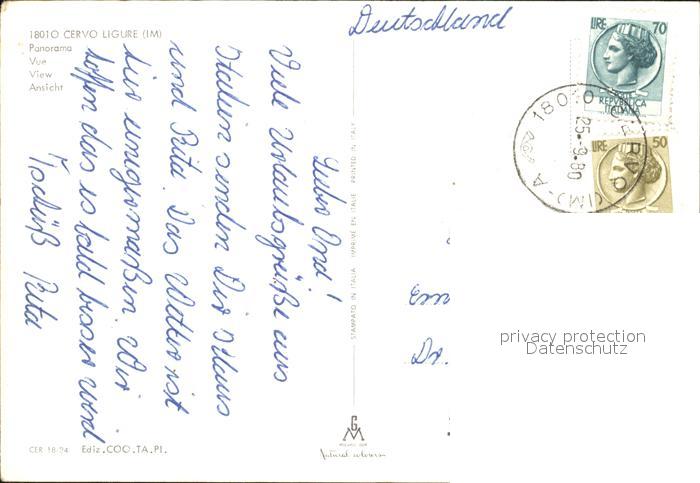 18010 CERVO LIGURE (IM)
Panorama
Vue
View
Ansicht
Lieber Ond!
Viele Urlaubsgrüße aus
Italien senden Dir Klaus
und Rita. Das Wetter ist
hier einigermaßen. Wir
hoffen das es bald besser wird
Tschüß Rita
Deutschland
LIRE 70
POSTE
REPUBBLICA
ITALIANA
LIRE 50
18010 CERVO (IM) - A
25-9-80
STAMPATO IN ITALIA IMPRIMÉ EN ITALIE PRINTED IN ITALY
Em
Dr.
privacy protection
Datenschutz
GM
Natural colours
CER 18-24 Ediz. COO.TA.PI.